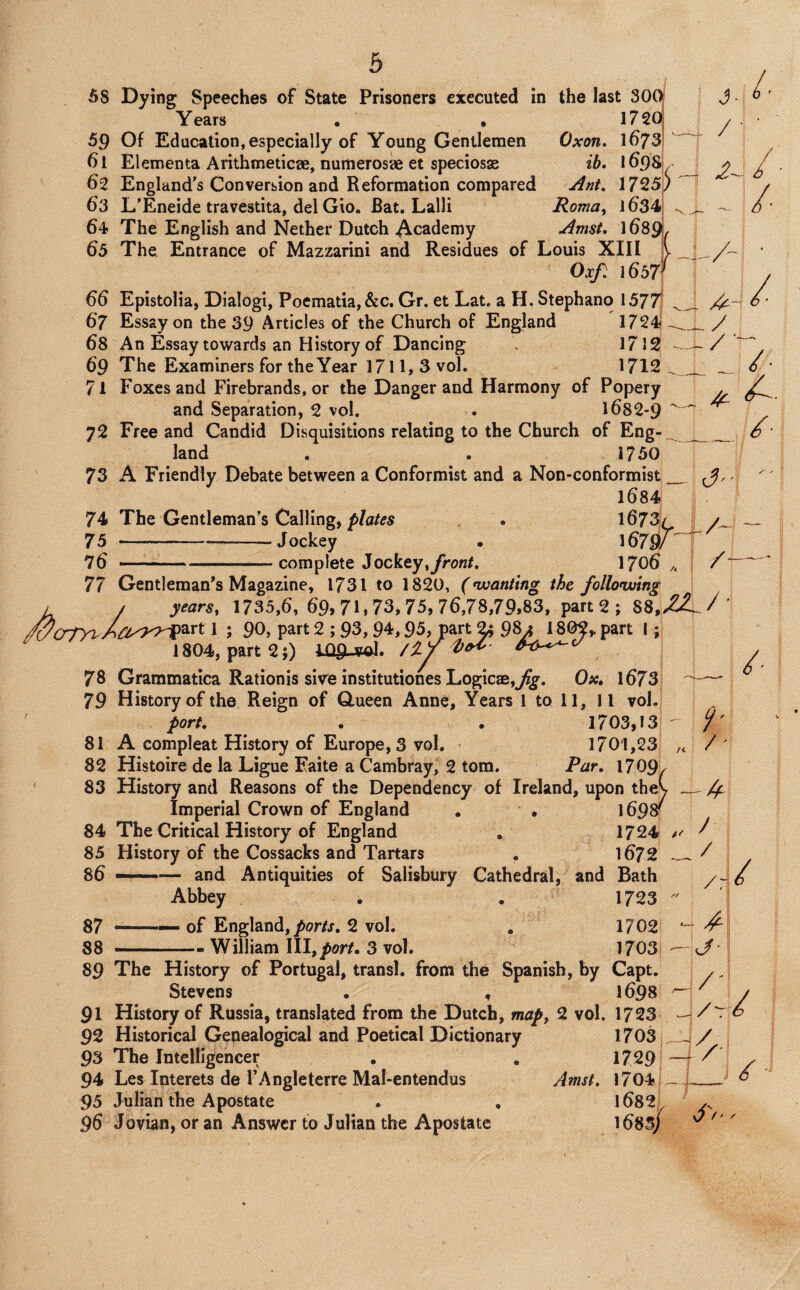 5
58 Dying Speeches of State Prisoners executed in the last 300 3 - 6
Years . . 1720
59 Of Education, especially of Young Gentlemen Oxon. 1673
61 Elementa Arithmeticæ, numerosæ et speciosæ ib. 1698
62 England's Conversion and Reformation compared Ant. 1725) 2 - 6
63 L'Eneide travestita, del Gio. Bat. Lalli Roma, 1634 - 6
64 The English and Nether Dutch Academy Amst. 1689
65 The Entrance of Mazzarini and Residues of Louis XIII
Oxf. 1657
66 Epistolia, Dialogi, Poematia, &c. Gr. et Lat. a H. Stephano 1577 4 - 6
67 Essay on the 39 Articles of the Church of England 1724
68 An Essay towards an History of Dancing 1712
69 The Examiners for the Year 1711, 3 vol. 1712 6
71 Foxes and Firebrands, or the Danger and Harmony of Popery
and Separation, 2 vol. . 1682-9 4
72 Free and Candid Disquisitions relating to the Church of Eng- 6
land . . 1750
73 A Friendly Debate between a Conformist and a Non-conformist 3
1684
74 The Gentleman's Calling, plates . 1673
75 ———— Jockey . 1679
76 ———— complete Jockey, front. 1706
77 Gentleman's Magazine, 1731 to 1820, (wanting the following
years, 1735,6, 69, 71, 73, 75, 76,78,79,83, part 2 ; 88, 22
part 1 ; 90, part 2 ; 93, 94, 95, part 2; 98; 1802, part 1 ;
1804, part 2;) 109 vol.
78 Grammatica Rationis sive institutiones Logicæ, fig. Ox. 1673 6
79 History of the Reign of Queen Anne, Years 1 to 11, 11 vol.
port. . . 1703,13 9
81 A compleat History of Europe, 3 vol. 1701,23
82 Histoire de la Ligue Faite a Cambray, 2 tom. Par. 1709
83 History and Reasons of the Dependency of Ireland, upon the 4
Imperial Crown of England . . 1698
84 The Critical History of England . 1724
85 History of the Cossacks and Tartars . 1672
86 ——— and Antiquities of Salisbury Cathedral, and Bath 6
Abbey . . 1723
87 ——— of England, ports. 2 vol. . 1702 4
88 ——— William III, port. 3 vol. 1703 3
89 The History of Portugal, transl. from the Spanish, by Capt.
Stevens . . 1698
91 History of Russia, translated from the Dutch, map, 2 vol. 1723 6
92 Historical Genealogical and Poetical Dictionary 1703
93 The Intelligencer . . 1729
94 Les Interets de l'Angleterre Mal-entendus Amst. 1704 6
95 Julian the Apostate . . 1682
96 Jovian, or an Answer to Julian the Apostate 1683)